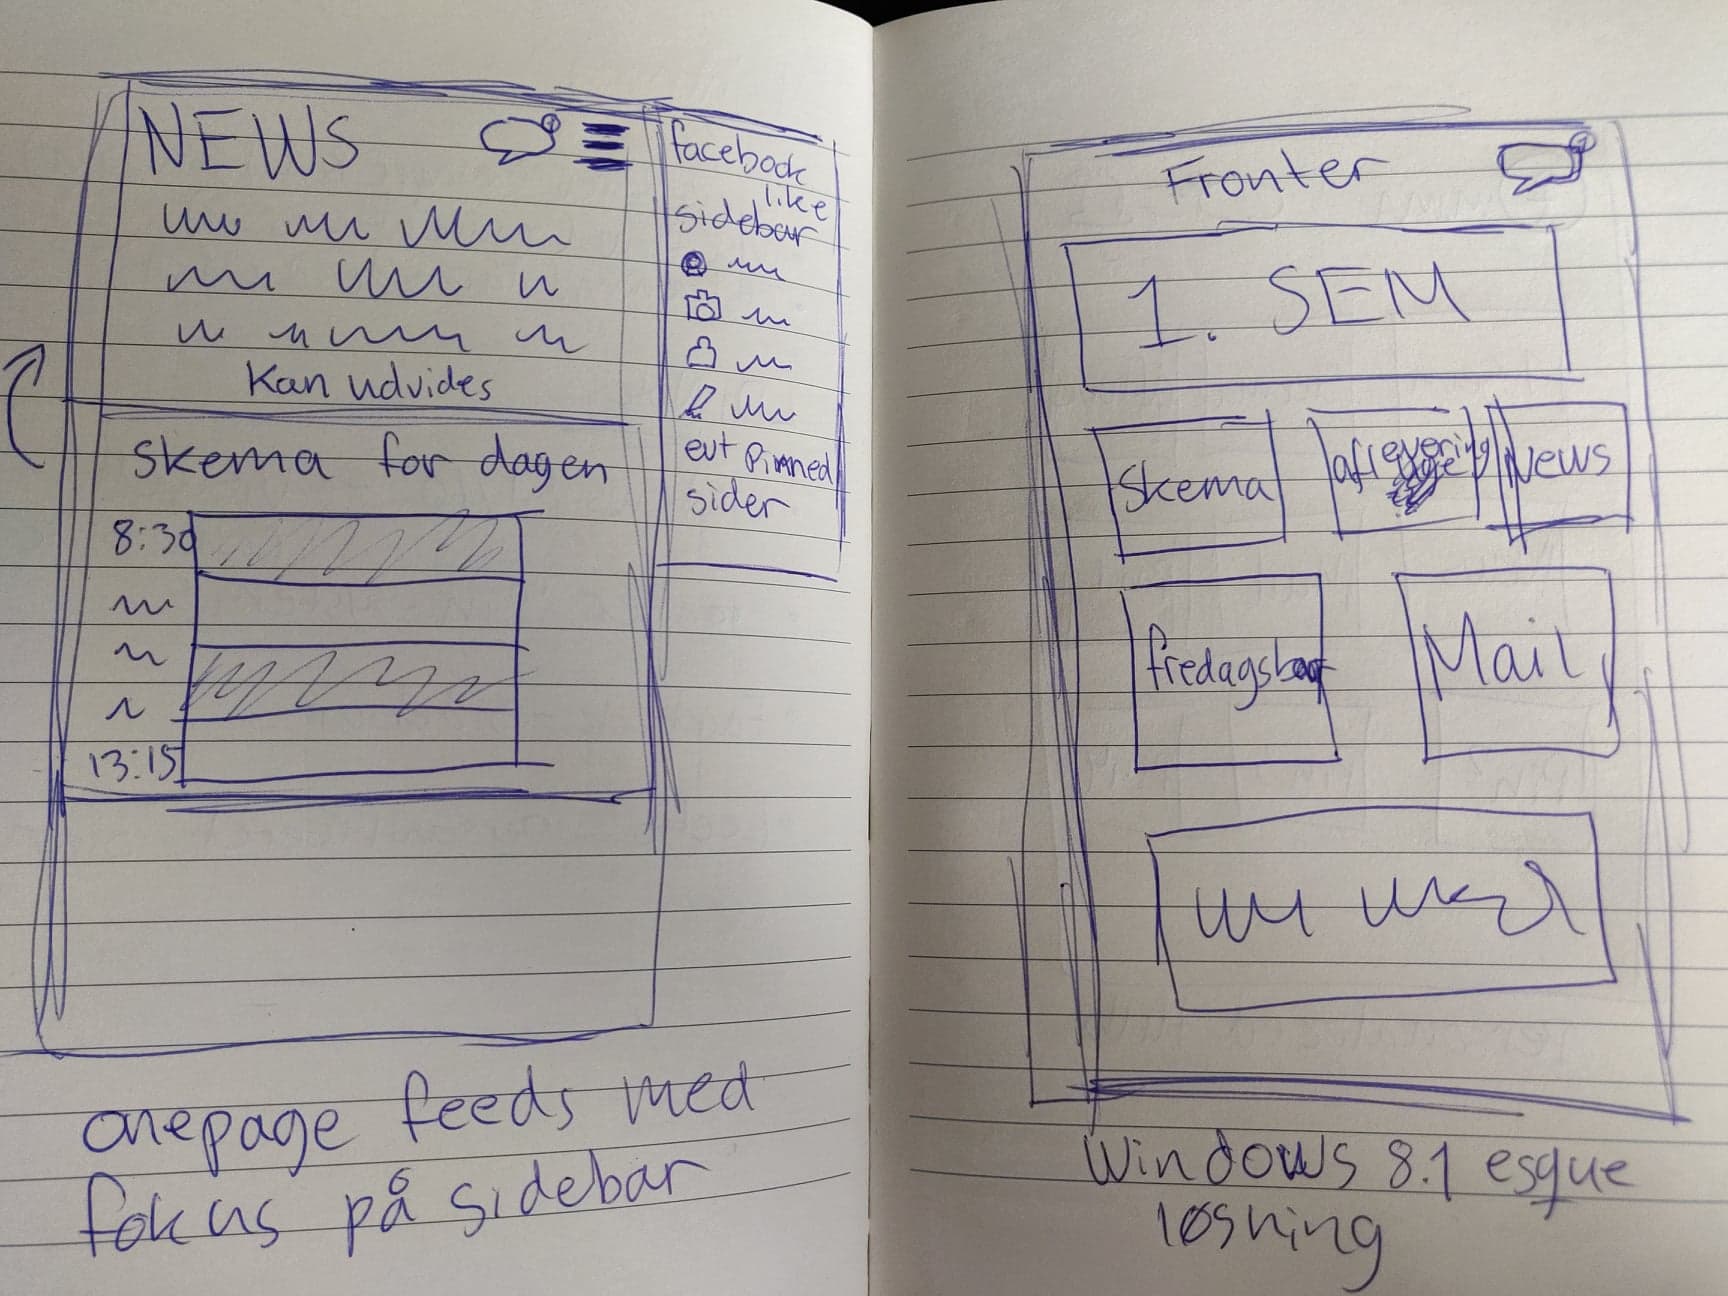 NEWS
Kan udvides
skema for dagen
8:30
13:15
facebook
like
sidebar
evt pinned
sider
onepage feeds med
fokus på sidebar
Fronter
1. SEM
Skema
aflevering
News
fredagsbar
Mail
Windows 8.1 esque
løsning